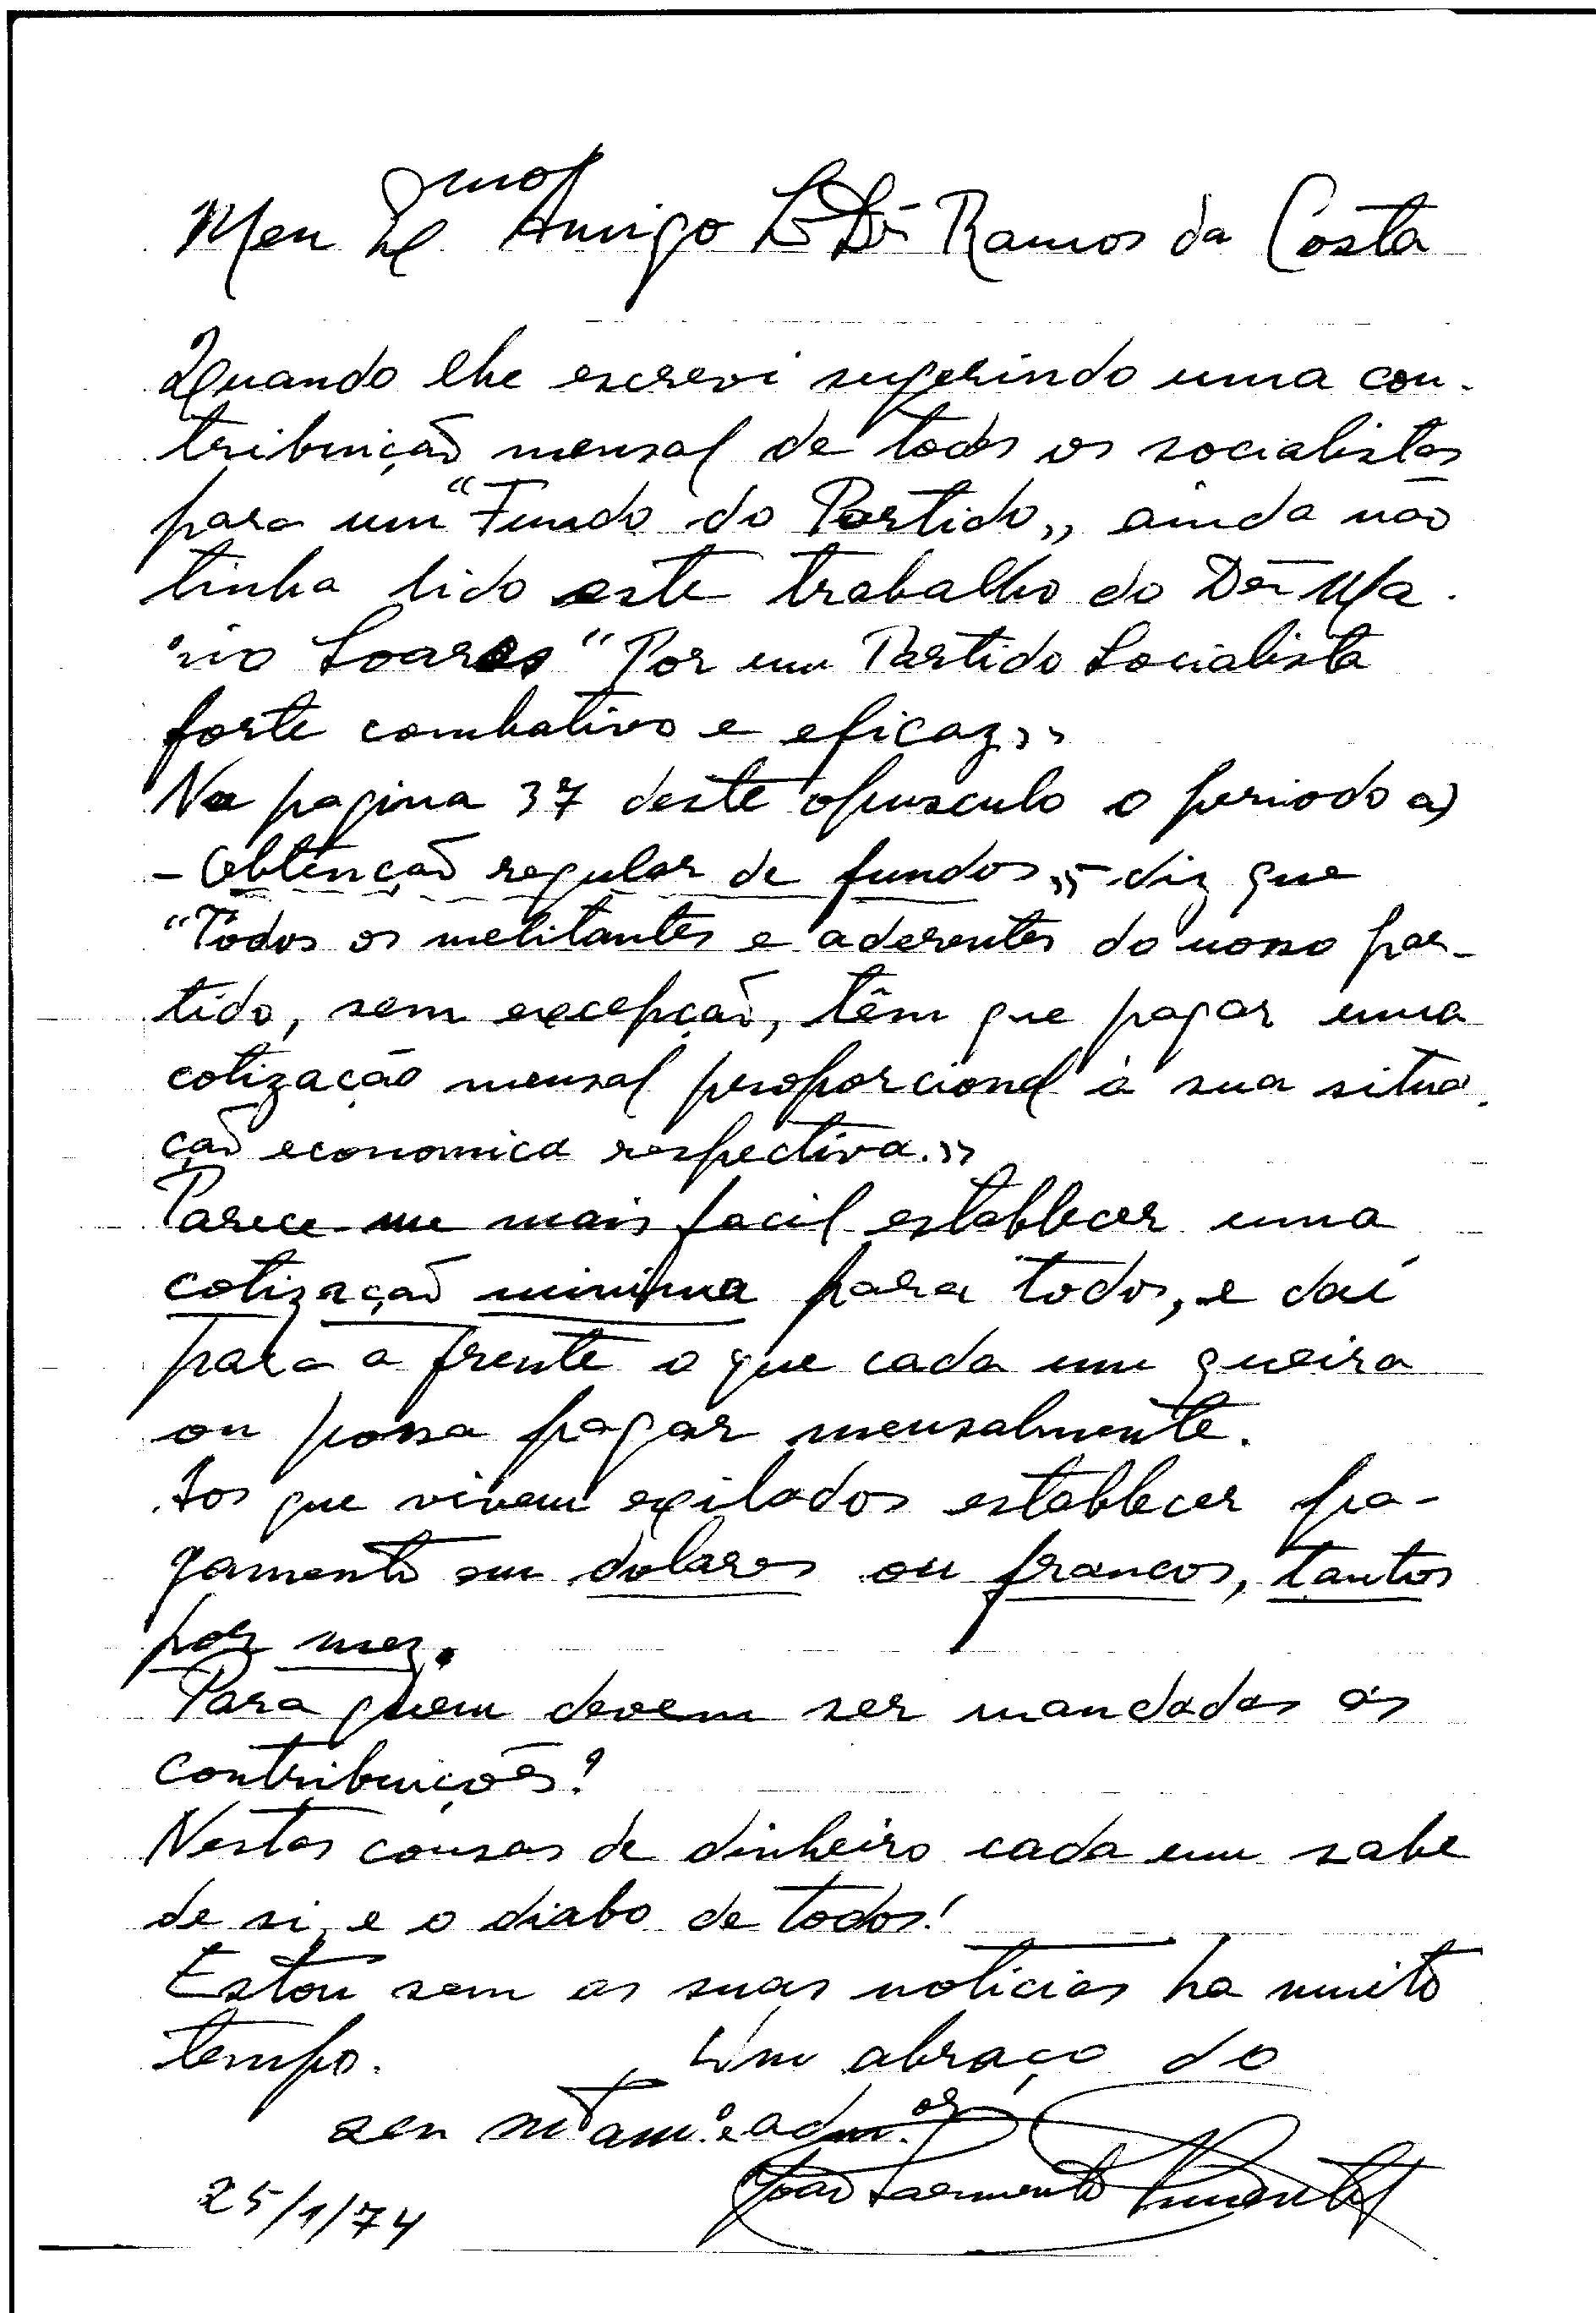 Meu Qdo Amigo Sr Dr Ramos da Costa
Quando lhe escrevi sugerindo uma con-
tribuição mensal de todos os socialistas
para um "Fundo do Partido,, ainda não
tinha lido este trabalho do Dr Ma-
rio Soares "Por um Partido Socialista
forte combativo e eficaz,,
Na pagina 37 deste opusculo o periodo a)
- Obtenção regular de fundos,, - diz que
"Todos os melitantes e aderentes do nosso par-
tido, sem excepção, têm que pagar uma
cotização mensal proporcional à sua situa-
ção economica respectiva.,,
Parece-me mais facil establecer uma
cotização minima para todos, e daí
para a frente o que cada um queira
ou possa pagar mensalmente.
Aos que vivem exilados establecer pa-
gamento em dolares ou francos, tantos
por mez.
Para quem devem ser mandadas as
contribuições?
Nestas cousas de dinheiro cada um sabe
de si, e o diabo de todos!
Estou sem as suas noticias ha muito
tempo. Um abraço do
seu mto amo e admor
João Sarmento Pimentel
25/1/74